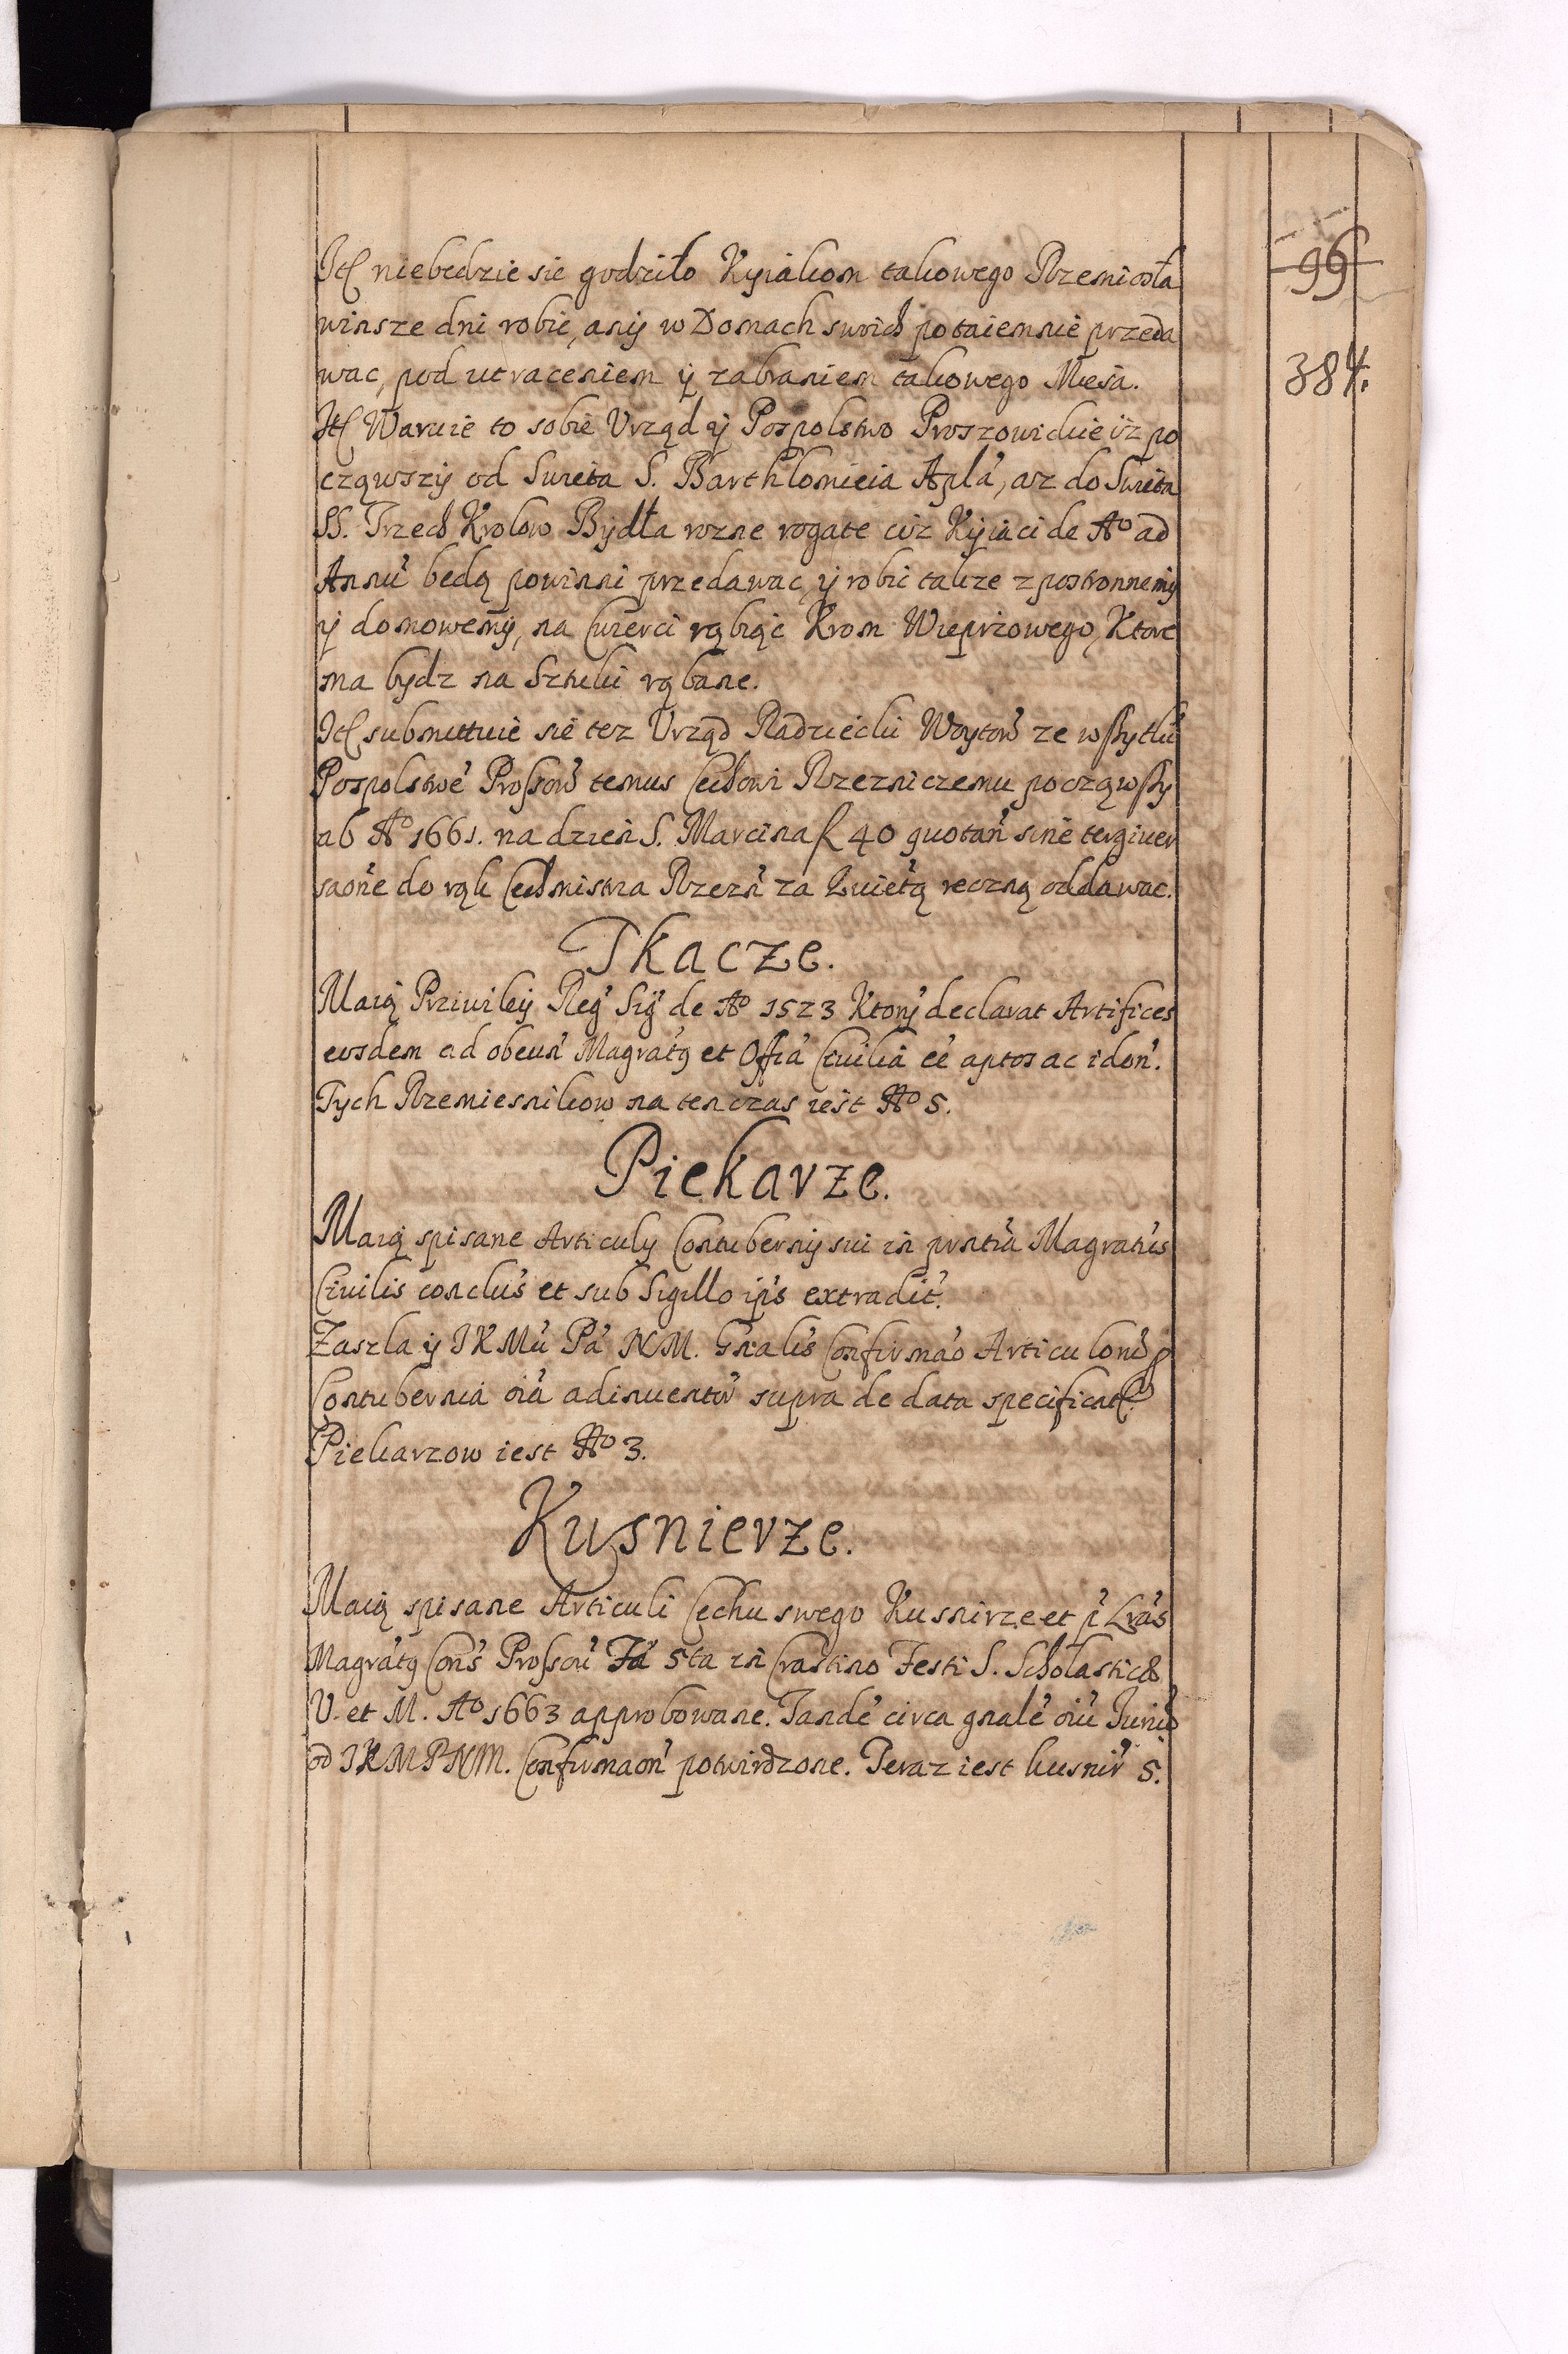 99
384.
Itt niebedzie sie godziło Kyiakom takowego Rzemiosła
winsze dni robic, anij w Domach swoich potaiemnie przeda
wac, pod utraceniem ÿ zabraniem takowego Miesa.
Itt Waruie to sobie Urząd ÿ Pospolstwo Proszowickie iz po
cząwszÿ od Swieta S. Barthlomieia Apla', asz do Swieta
SS. Trzech Krolow Bÿdła rozne rogate ciz Kÿiaci de Ao ad
Annu' bedą powinni przedawac, ÿ robic takze z postronnemÿ
ÿ domowemÿ, na Cwierci rąbiąc Krom Wieprzowego, Ktore
ma bÿdz na Sztuki rąbane.
Itt submittuie sie tez Urząd Radziecki Woytow' ze wszytki'
Pospolstwe' Prossow' temus Cechowi Rzezniczemu począwszy
ab Ao 1661. na dzien S. Marcina f 40 quotan' sine tergiver
saõne do rąk Cechmistrza Rzezn' za Kwietą roczną oddawac.
Tkacze.
Maią Przwileÿ Reg' Sig' de Ao 1523 Ktorÿ declarat Artifices
eosdem ad obeun' Magratq et Offia' Civilia ee' aptos ac idon'.
Tych Rzemiesnikow na ten czas iest No 5.
Piekarze.
Maią spisane Articulÿ Contubernÿ sui in pntia' Magratus
Civilis conclus' et sub Sigillo ips' extradit'.
Zaszla ÿ JKMu' Pa' NM. G'nalis Confirmao' Articulorw' p
Contubernia oia' adinventw' supra de data specificatt
Piekarzow iest No 3.
Kusnierze.
Maią spisane Articuli Cechu swego Kusnirze et p' Lras
Magratq Cons' Prossow' Fa' 5ta in Crastino Festi S. Scholasticæ
V. et M. Ao 1663 approbowane. Tande' circa gnale' oiu' Juriu'
od JKMPNM. Confirmaon' potwirdzone. Teraz iest kusnir' 5.